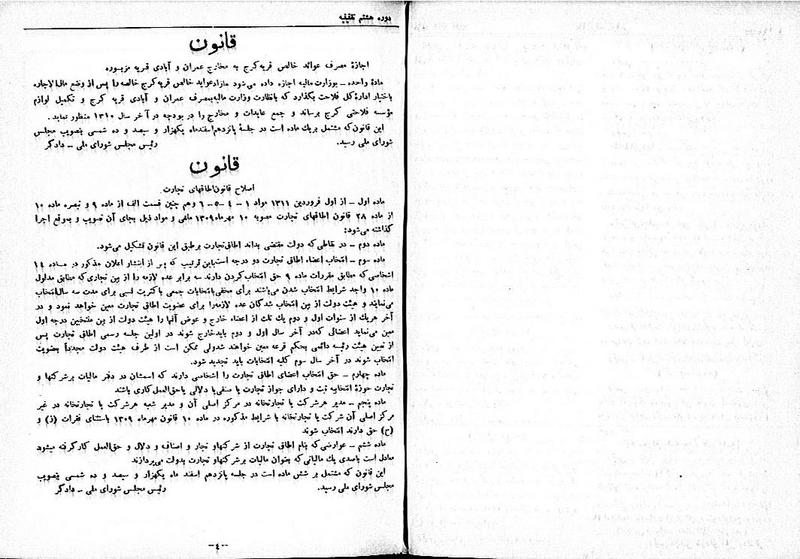 دوره هشتم تقنینیه
قانون
اجازهٔ مصرف عوائد خالص قریه کرج به مخارج عمران و آبادی قریه مزبوره
مادهٔ واحده – بوزارت مالیه اجازه داده می‌شود مازاد عواید خالص قریه کرج خالصه را پس از وضع مال‌الاجاره
باختیار ادارهٔ کل فلاحت بگذارد که با نظارت وزارت مالیه بمصرف عمران و آبادی قریه کرج و تکمیل لوازم
مؤسسه فلاحتی کرج برساند و جمع عایدات و مخارج را در بودجه در آخر سال ۱۳۱۰ منظور نماید.
این قانون که مشتمل بر یک ماده است در جلسهٔ پانزدهم اسفندماه یکهزار و سیصد و ده شمسی بتصویب مجلس
شورای ملی رسید. رئیس مجلس شورای ملی – دادگر
قانون
اصلاح قانون اطاقهای تجارت
ماده اول – از اول فروردین ۱۳۱۱ مواد ۱ – ۴ – ۵ – ۶ و هم چنین قسمت الف از ماده ۹ و تبصره ماده ۱۰
از ماده ۲۸ قانون اطاقهای تجارت مصوبه ۱۰ مهرماه ۱۳۰۹ ملغی و مواد ذیل بجای آن تصویب و بموقع اجرا
گذاشته می‌شود:
ماده دوم – در نقاطی که دولت مقتضی بداند اطاق تجارت برطبق این قانون تشکیل می‌شود.
ماده سوم – انتخاب اعضاء اطاق تجارت دو درجه است باین ترتیب که پس از انتشار اعلان مذکور در ماده ۱۴
اشخاصی که مطابق مقررات ماده ۹ حق انتخاب کردن دارند سه برابر عده لازمه را از بین تجاری که مطابق مدلول
ماده ۱۰ واجد شرایط انتخاب شدن می‌باشند برأی مخفی با انتخابات جمعی با کثریت نسبی برای مدت سه سال انتخاب
می‌نمایند و هیئت دولت از بین انتخاب شدگان عده لازمه را برای عضویت اطاق تجارت معین خواهد نمود و در
آخر هریک از سنوات اول و دوم یک ثلث از اعضاء خارج و عوض آنها را هیئت دولت از بین منتخبین درجه اول
معین می‌نماید اعضائی که در آخر سال اول و دوم باید خارج شوند در اولین جلسه رسمی اطاق تجارت پس
از تعیین هیئت رئیسه دائمی بحکم قرعه معین خواهند شد ولی ممکن است از طرف هیئت دولت مجدداً بعضویت
انتخاب شوند در آخر سال سوم کلیه انتخابات باید تجدید شود.
ماده چهارم – حق انتخاب اعضای اطاق تجارت را اشخاصی دارند که اسمشان در دفتر مالیات بر شرکتها و
تجارت حوزهٔ انتخابیه ثبت و دارای جواز تجارت یا صنفی یا دلالی یا حق‌العمل‌کاری باشند
ماده پنجم – مدیر هر شرکت یا تجارتخانه در مرکز اصلی آن و مدیر شعبه هر شرکت یا تجارتخانه در غیر
مرکز اصلی آن شرکت یا تجارتخانه با شرایط مذکوره در ماده ۱۰ قانون مهرماه ۱۳۰۹ باستثنای فقرات (ذ) و
(ح) حق دارند انتخاب شوند
ماده ششم – عوارضی که بنام اطاق تجارت از شرکتها و تجار و اصناف و دلال و حق‌العمل کار گرفته میشود
معادل است با صدی یک مالیاتی که بعنوان مالیات بر شرکتها و تجارت بدولت می‌پردازند
این قانون که مشتمل بر شش ماده است در جلسه پانزدهم اسفند ماه یکهزار و سیصد و ده شمسی بتصویب
مجلس شورای ملی رسید. رئیس مجلس شورای ملی – دادگر
–۴–